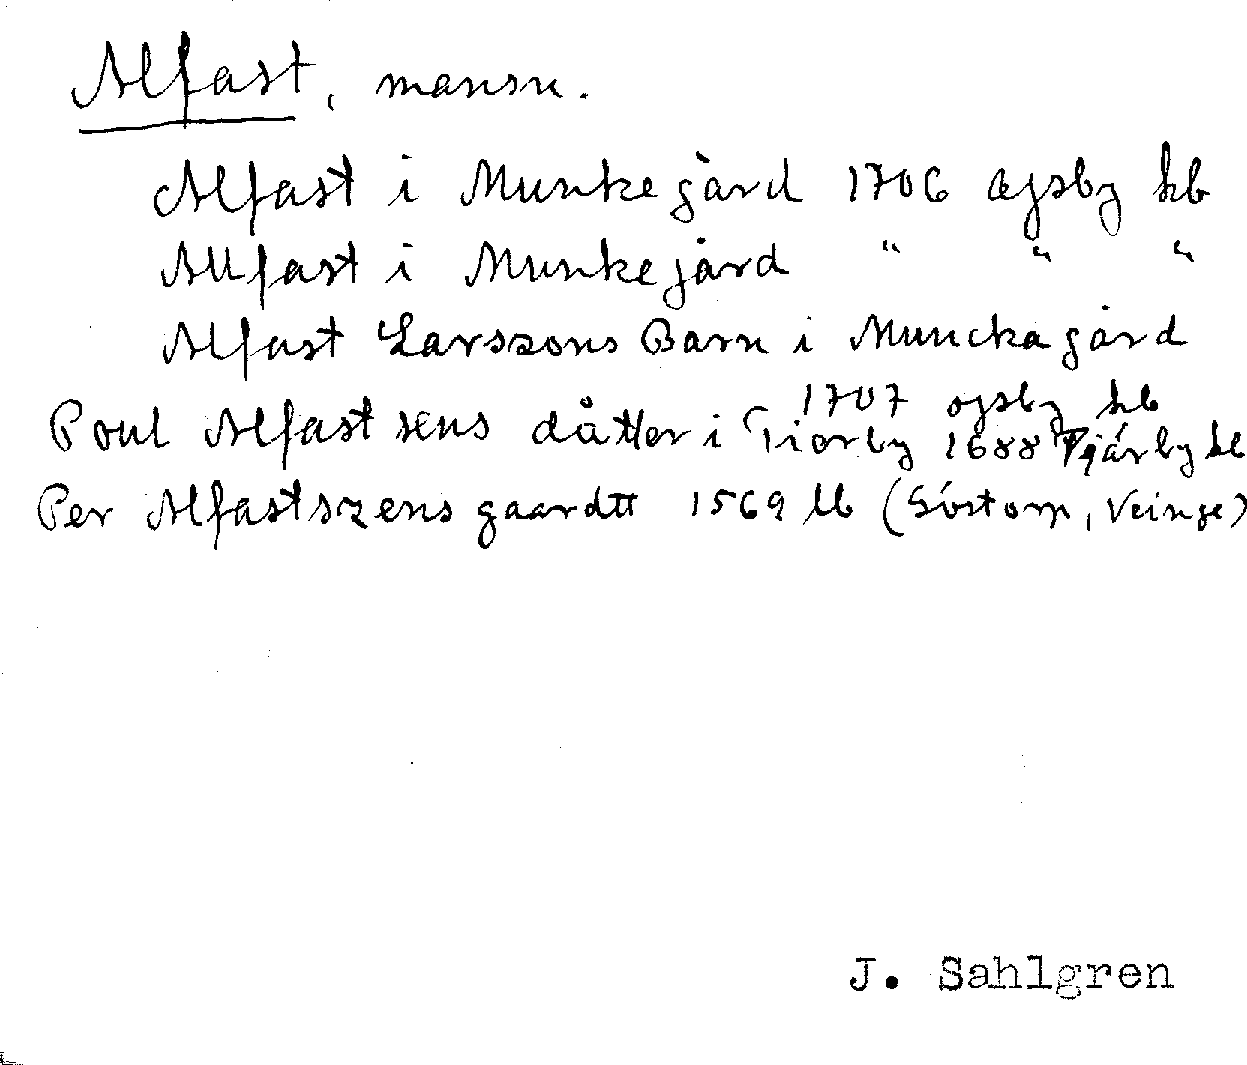 Alfast, mansn.
Alfast i Munkegård 1706 ögsby kb
Allfast i Munkegård " " "
Alfast Larszons Barn i Munckagård
1707 ögsby kb
Poul Alfastsens dåtter i Tiorby 1688 Tjärby kb
Per Alfastszens gaardtt 1569 lb (Göstorp, Veinge)
J. Sahlgren